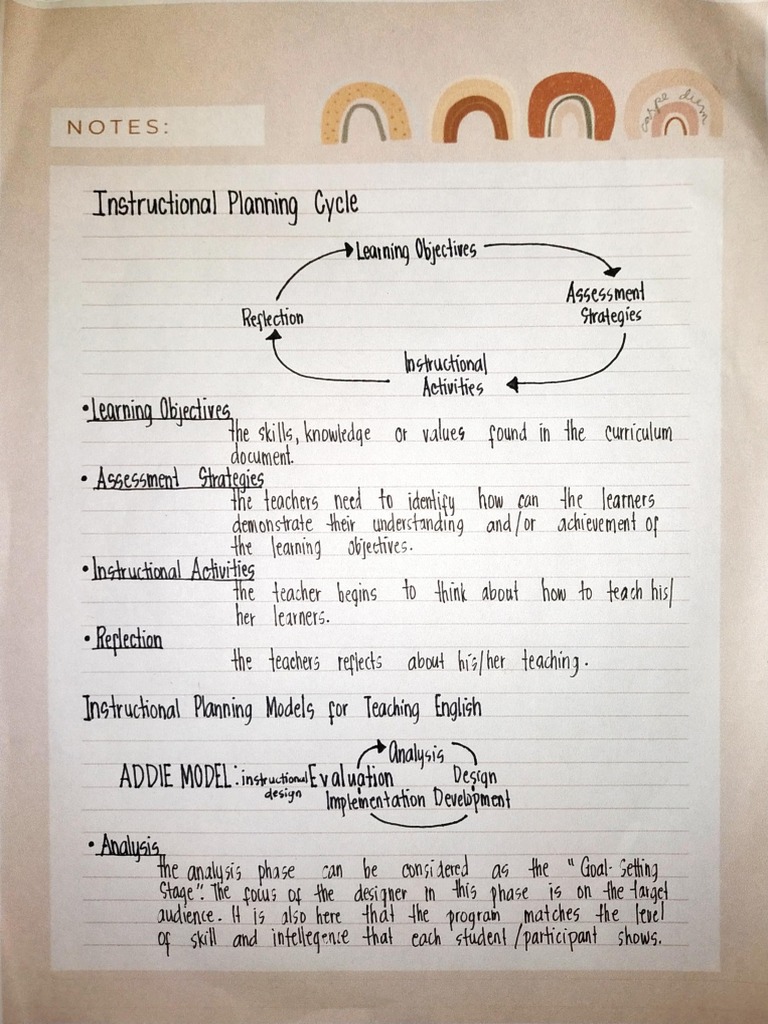 NOTES:
carpe diem
Instructional Planning Cycle
Learning Objectives
Assessment
Strategies
Reflection
Instructional
Activities
• Learning Objectives
the skills, knowledge or values found in the curriculum
document.
• Assessment Strategies
the teachers need to identify how can the learners
demonstrate their understanding and/or achievement of
the learning objectives.
• Instructional Activities
the teacher begins to think about how to teach his/
her learners.
• Reflection
the teachers reflects about his/her teaching.
Instructional Planning Models for Teaching English
Analysis
ADDIE MODEL: instructional Evaluation Design
design Implementation Development
• Analysis
the analysis phase can be considered as the "Goal-Setting
Stage". The focus of the designer in this phase is on the target
audience. It is also here that the program matches the level
of skill and intellegence that each student/participant shows.